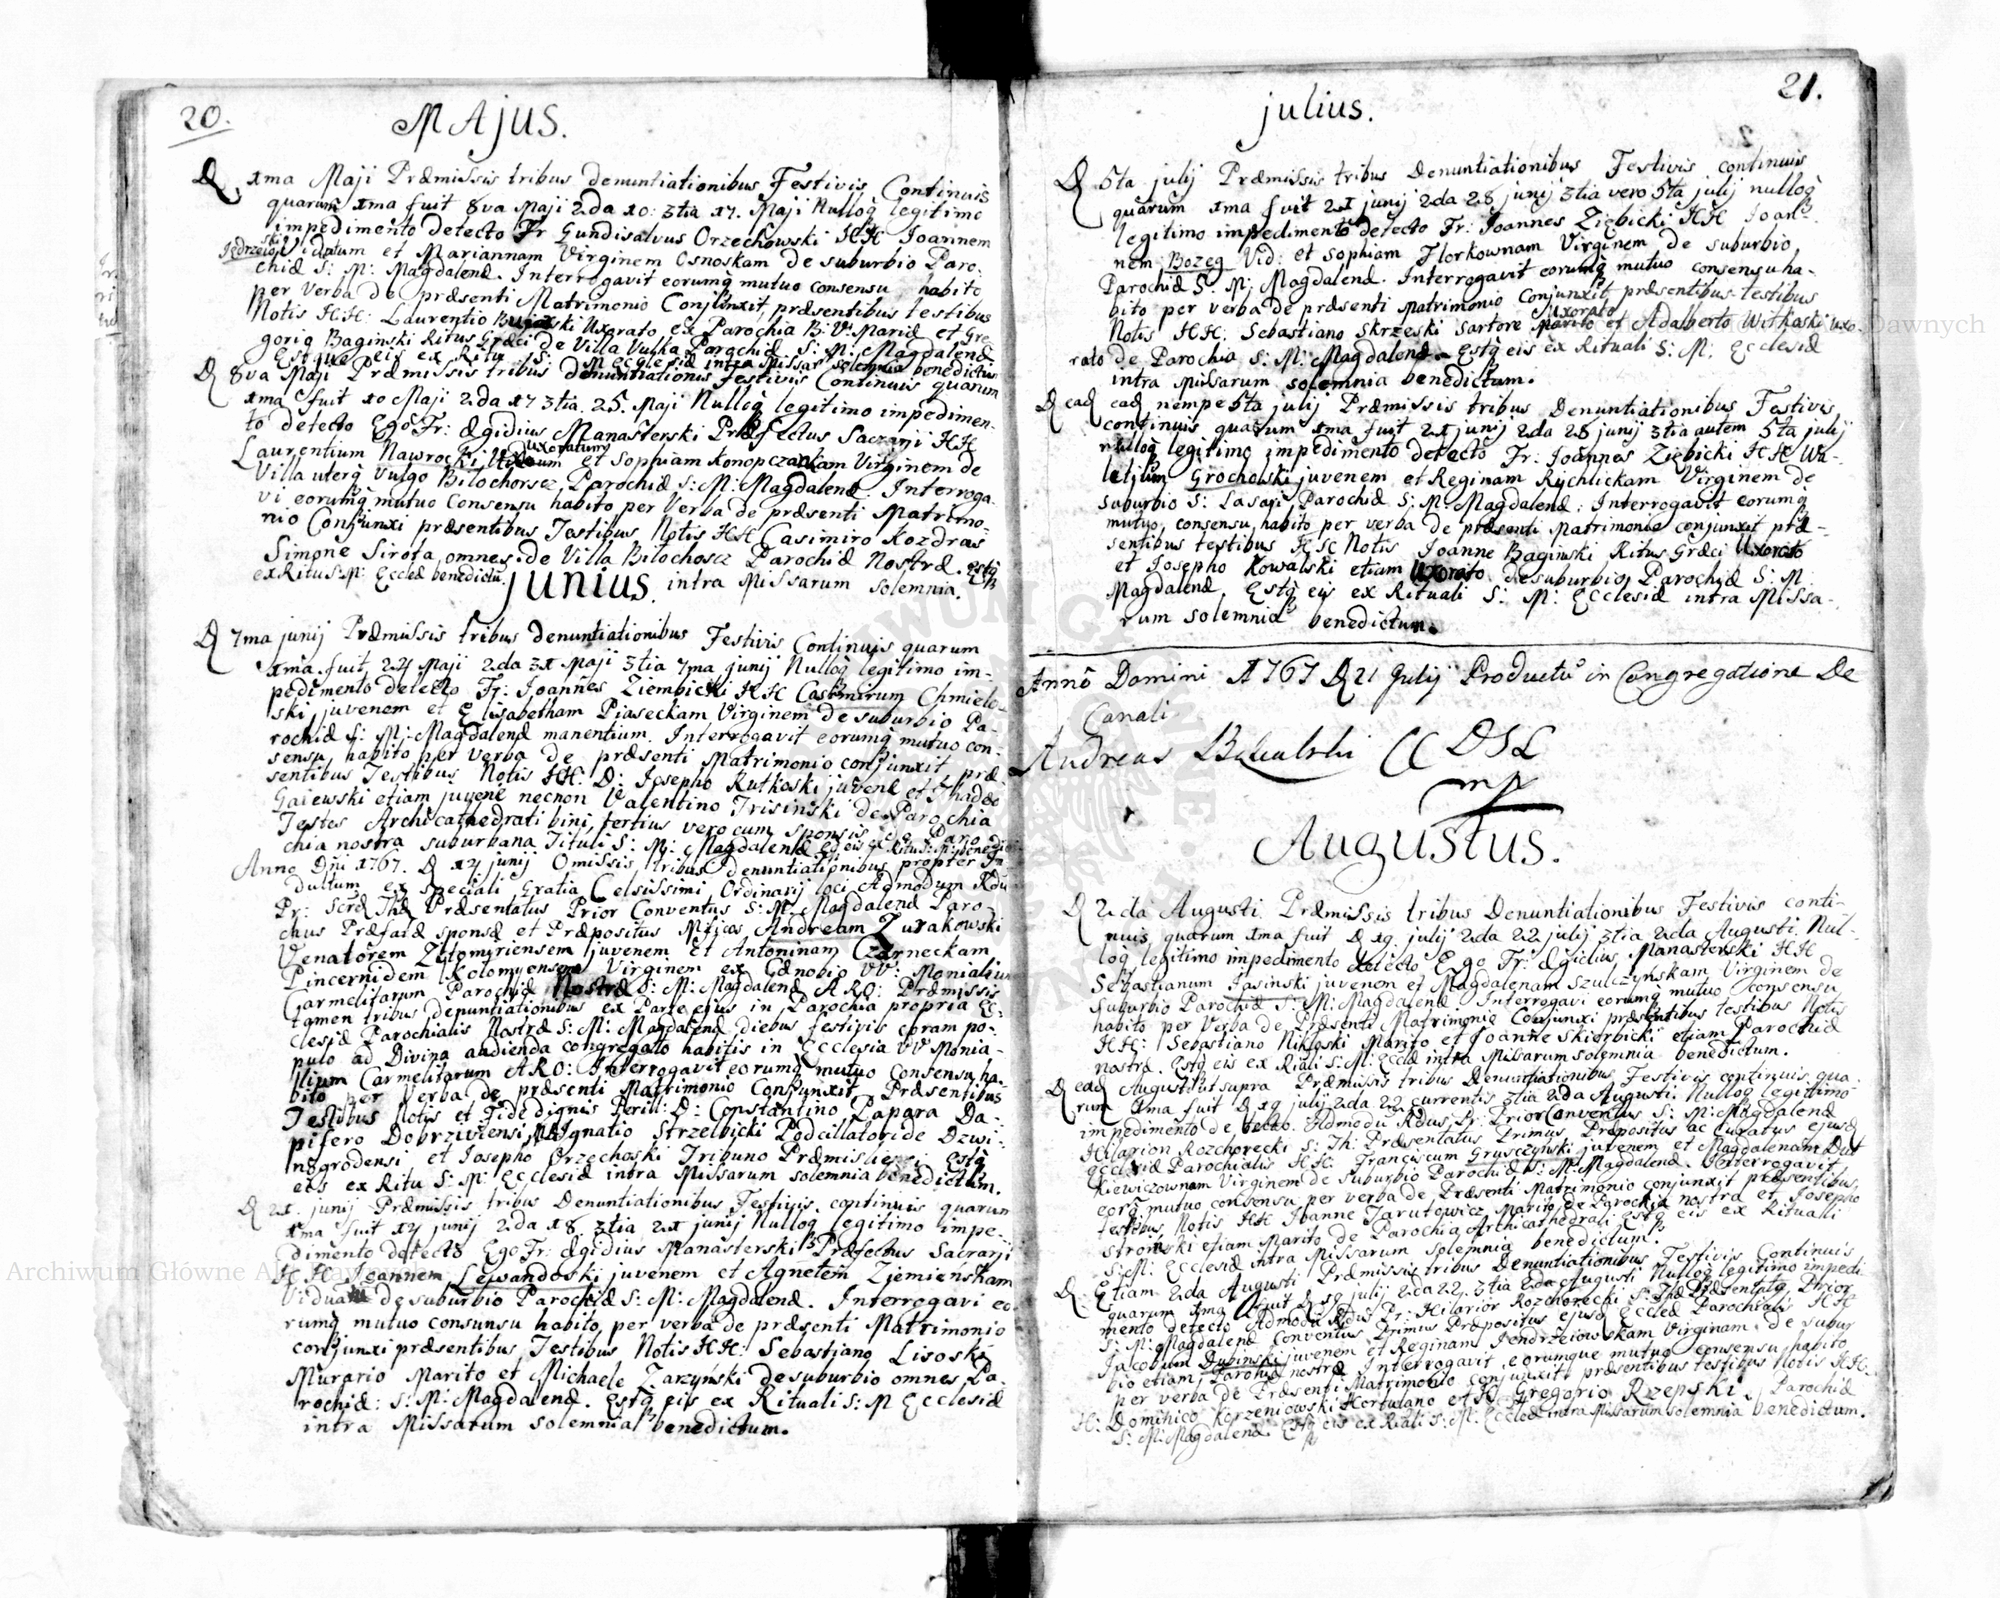 20.
MAjUS.
D 1ma Maji Præmissis tribus denuntiationibus Festivis Continuis
quarum 1ma fuit 8va Maji 2da 10: 3tia 17. Maji Nulloq legitimo
impedimento detecto Fr Gundisalvus Orzechowski HH Joannem
Viduum et Mariannam Virginem Osnoskam de suburbio Paro-
chiæ S: M: Magdalenæ. Interrogavit eorumq mutuo consensu habito
per Verba de præsenti Matrimonio Conjunxit, præsentibus testibus
Notis HH: Laurentio Uxorato ex Parochia B: V: Mariæ et Gre-
gorio Baginski Ritus Græci de Villa Vulka Parochiæ S: M: Magdalenæ
Estque eis ex Ritu S: M Ecclesiæ intra Missar solemnia benedictum
D 8va Maji Præmissis tribus denuntiationis festivis Continuis quarum
1ma fuit 10 Maji 2da 17 3tia. 25. Maji Nulloq legitimo impedimen-
to detecto Ego Fr: Ægidius Manasterski Præfectus Sacrarij HH
Laurentium Nawrocki uxoratum et Sophiam Konopczankam Virginem de
Villa uterq Vulgo Bilochorscz, Parochiæ S: M: Magdalenæ. Interroga-
vi eorumq mutuo Consensu habito per Verba de præsenti Matrimo-
nio Conjunxi præsentibus Testibus Notis HH Casimiro Kozdras
Simone Sirota omnes de Villa Bilochoscz Parochiæ Nostræ. Estq
ex Ritu S: M: Eccleæ benedictu intra Missarum solemnia.
junius.
D 7ma junij Præmissis tribus denuntiationibus Festivis Continuis quarum
1ma fuit 24 Maji 2da 31 Maji 3tia 7ma junij Nulloq legitimo im-
pedimento detecto Fr: Joannes Ziembicki HH Casimirum Chmielo-
ski juvenem et Elisabetham Piaseckam Virginem de suburbio Pa-
rochiæ S: M: Magdalenæ manentium. Interrogavit eorumq mutuo con-
sensu habito per Verba de præsenti Matrimonio conjunxit præ-
sentibus Testibus Notis HH: D: Josepho Rutkoski juvene et Thadeo
Gaiewski etiam juvene necnon Valentino Trisinski de Parochia
Testes Archicathedrati bini, tertius vero cum sponsis de Paro-
chia nostra suburbana Tituli S: M: Magdalenæ
Anno Dñi 1767. D 14 junij Omissis tribus denuntiationibus propter In-
dultum ex speciali Gratia Celsissimi Ordinarij loci Admodum Rdus
Pr: Præsentatus Prior Conventus S: M: Magdalenæ Paro-
chus Præfatæ sponsæ et Præpositus Andream Zurakowski
Venatorem Zytomyriensem juvenem et Antoninam Czarneckam
Pincernidem Kolomyensem Virginem ex Cænobio VV: Monialium
Carmelitarum Parochiæ Nostræ S: M: Magdalenæ A RO: Præmissis
tamen tribus denuntiationibus ex Parte ejus in Parochia propria Ec-
clesiæ Parochialis Nostræ S: M: Magdalenæ diebus festivis coram po-
pulo ad Divina audienda congregato habitis in Ecclesia VV Monia-
lium Carmelitarum A RO: Interrogavit eorumq mutuo Consensu ha-
bito per Verba de præsenti Matrimonio Conjunxit Præsentibus
Testibus Notis et Fide dignis Perill: D: Constantino Papara Da-
pifero Dobrziviensi, Ignatio Strzelbicki Podcillatoride Dzwi-
nogrodensi et Josepho Orzechoski Tribuno Præmisliensi Estq
eis ex Ritu S: M: Ecclesiæ intra Missarum solemnia benedictum.
D 21. junij Præmissis tribus Denuntiationibus Festivis continuis quarum
1ma fuit 14 junij 2da 18 3tia 21 junij Nulloq legitimo impe-
dimento detecto Ego Fr: Ægidius Manasterski Præfectus Sacrarij
HH Joannem Lewandoski juvenem et Agnetem Ziemieńskam
Viduam de suburbio Parochiæ S: M: Magdalenæ. Interrogavi eo-
rumq mutuo consunsu habito, per verba de præsenti Matrimonio
conjunxi præsentibus Testibus Notis HH: Sebastiano Lisoski
Murario Marito et Michaele Zarzyński de suburbio omnes Pa-
rochiæ: S: M: Magdalenæ. Estq eis ex Rituali S: M Ecclesiæ
intra Missarum solemnia benedictum.
21.
julius.
D 5ta julij Præmissis tribus Denuntiationibus Festivis continuis
quarum 1ma fuit 21 junij 2da 28 junij 3tia vero 5ta julij nulloq
legitimo impedimento detecto Fr: Joannes Ziębicki HH Joan-
nem Bozeg Vid: et Sophiam Florkownam Virginem de suburbio
Parochiæ S: M: Magdalenæ. Interrogavit eorumq mutuo consensu ha-
bito per verba de præsenti Matrimonio Conjunxit, præsentibus testibus
Notis HH: Sebastiano Skrzeski Sartore Uxorato et Adalberto Witkaski uxo-
rato de Parochia S: M: Magdalenæ Estq eis ex Rituali S: M: Ecclesiæ
intra Missarum solemnia benedictum.
D eaď eaď nempe 5ta julij Præmissis tribus Denuntiationibus Festivis
continuis quarum 1ma fuit 21 junij 2da 28 junij 3tia autem 5ta julij
nulloq legitimo impedimento detecto Fr: Joannes Ziębicki HH Wa-
lenium Grochowski juvenem et Reginam Rychlickam Virginem de
suburbio S: Lasari Parochiæ S: M: Magdalenæ: Interrogavit eorumq
mutuo, consensu, habito per verba de præsenti Matrimonio conjunxit præ-
sentibus testibus HH Notis Joanne Baginski Ritus Græci Uxorato
et Josepho Kowalski etiam Uxorato de suburbio, Parochiæ S: M:
Magdalenæ, Estq eis ex Rituali S: M: Ecclesiæ intra Missa-
rum solemnia benedictum.
Anno Domini 1767 D 21 Julij Productu in Congregatione De
Canali
Andreas CC DSL
mp
Augustus.
D 2da Augusti Præmissis tribus Denuntiationibus Festivis conti-
nuis quarum 1ma fuit D 19. julij 2da 22 julij 3tia 2da Augusti. Nul-
loq legitimo impedimento detecto Ego Fr: Ægidius Manasterski HH
Sebastianum Jasinski juvenem et Magdalenam Szulczynskam Virginem de
Suburbio Parochiæ S: M: Magdalenæ Interrogavi eorumq mutuo consensu
habito per Verba de Præsenti Matrimonio Conjunxi præsentibus testibus Notis
HH: Sebastiano Nikloski Marito et Joanne Skierbicki etiam Parochiæ
nostra. Estq eis ex Riali S: M: Eccleæ intra Missarum solemnia benedictum.
D eaď Augusti ut supra Præmissis tribus Denuntiationibus Festivis continuis qua-
rum 1ma fuit D 19 julij 2da 22 currentis 3tia 2da Augusti. Nulloq legitimo
impedimento detecto. Admodu Rdus Pr: Prior Conventus S: M: Magdalenæ
Hilarion Rozchorecki S: Th: Præsentatus Primus Præpositus ac Curatus ejusď
Ecclesiæ Parochialis HH: Franciscum Grusczynski juvenem et Magdalenam Dut
kiewiczownam Virginem de Suburbio Parochiæ S: M: Magdalenæ. Interrogavit
eorq mutuo consensu per verba de Præsenti Matrimonio conjunxit præsentibus
testibus Notis HH Joanne Jarutowicz Marito de Parochia nostra et Josepho
Stronski etiam Marito de Parochia Archicathedrali. Estq eis ex Rituali
S: M: Ecclesiæ intra Missarum solemnia benedictum.
D. Etiam 2da Augusti Præmissis tribus Denuntiationibus Festivis Continuis
quarum 1ma fuit D 19 julij 2da 22. 3tia 2da Augusti Nulloq legitimo impedi-
mento detecto Admodu Rdus Pr: Hilarion Rozchorecki S: Præsenttg Prior
S: M: Magdalenæ Conventus Primus Præpositus ejusď Eccleæ Parochialis HH
Jacobum Dubinski juvenem et Reginam Jendrzeiowskam Virginam de Subur
bio etiam Parohiæ nostræ Interrogavit, eorumque mutuo consensu habito
per verba de Præsenti Matrimonio conjunxit præsentibus testibus Notis HH:
H: Dominico Korzeniowski Hortulano et Gregorio Rzepski Parochiæ
S: M: Magdalenæ. Estq eis ex Riali S: M: Eccleæ intra Missarum solemnia benedictum.
Archiwum Główne Akt Dawnych